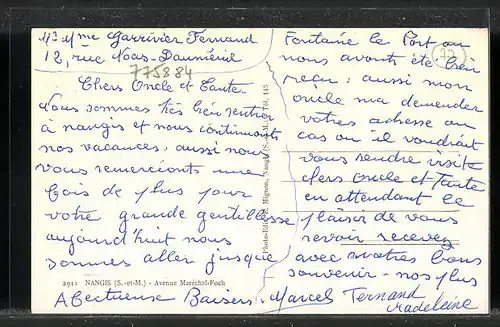 Mr Mme Garrivier Fernand
12, rue Nous-Dauméril
775884
Chers Oncle et Tante.
Nous sommes très bien rentrer
à nangis et nous continuons
nos vacances, aussi nous
vous remercions une
fois de plus pour
votre grande gentillesse
aujourd'huit nous
sommes aller jusque
2911 NANGIS (S.-et-M.) - Avenue Maréchal-Foch
Affectueuse Baisers. Marcel Fernand
Madeleine
Photo-Edit. Mignon, Nangis (S.-et-M.) Tél. 145
77
Fontaine le Port ou
nous avont été bien
reçu; aussi mon
oncle ma demender
votres adresse au
cas ou il voudrait
vous rendre visite
chers oncle et Tante
en attendant le
plaisir de vous
revoir recevez
avec notres bons
souvenir - nos plus